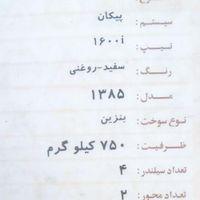 سیستم : پیکان
تیپ : ۱۶۰۰i
رنگ : سفید-روغنی
مدل : ۱۳۸۵
نوع سوخت : بنزین
ظرفیت : ۷۵۰ کیلو گرم
تعداد سیلندر : ۴
تعداد محور : ۲